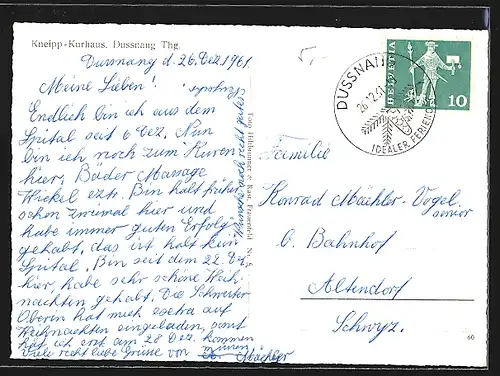 Kneipp-Kurhaus. Dussnang Thg.
Dussnang d. 26. Dez. 1961.
Meine Lieben!
Endlich bin ich aus dem
Spital seit 6 Dez. Nun
bin ich noch zum Kuren
hier, Bäder Massage
Wickel ezt. Bin halt früher
schon zweimal hier und
habe immer guten Erfolg
gehabt, das ist halt kein
Spital. Bin seit dem 22. Dez.
hier, habe sehr schöne Weih
nachten gehabt. Die Schwester
Oberin hat mich extra auf
Weihnachten eingeladen, sonst
hät ich erst am 28 Dez. kommen
müssen
Viele recht liebe Grüsse von Mächler
Wünsche auch recht gutes
Neujahr
Foto Hilfbrunner
Frauenfeld
HELVETIA
10
DUSSNANG
26.12.61
IDEALER FERIENORT
Familie
Konrad Mächler-Vogel
senior
b. Bahnhof
Altendorf
Schwyz.
60